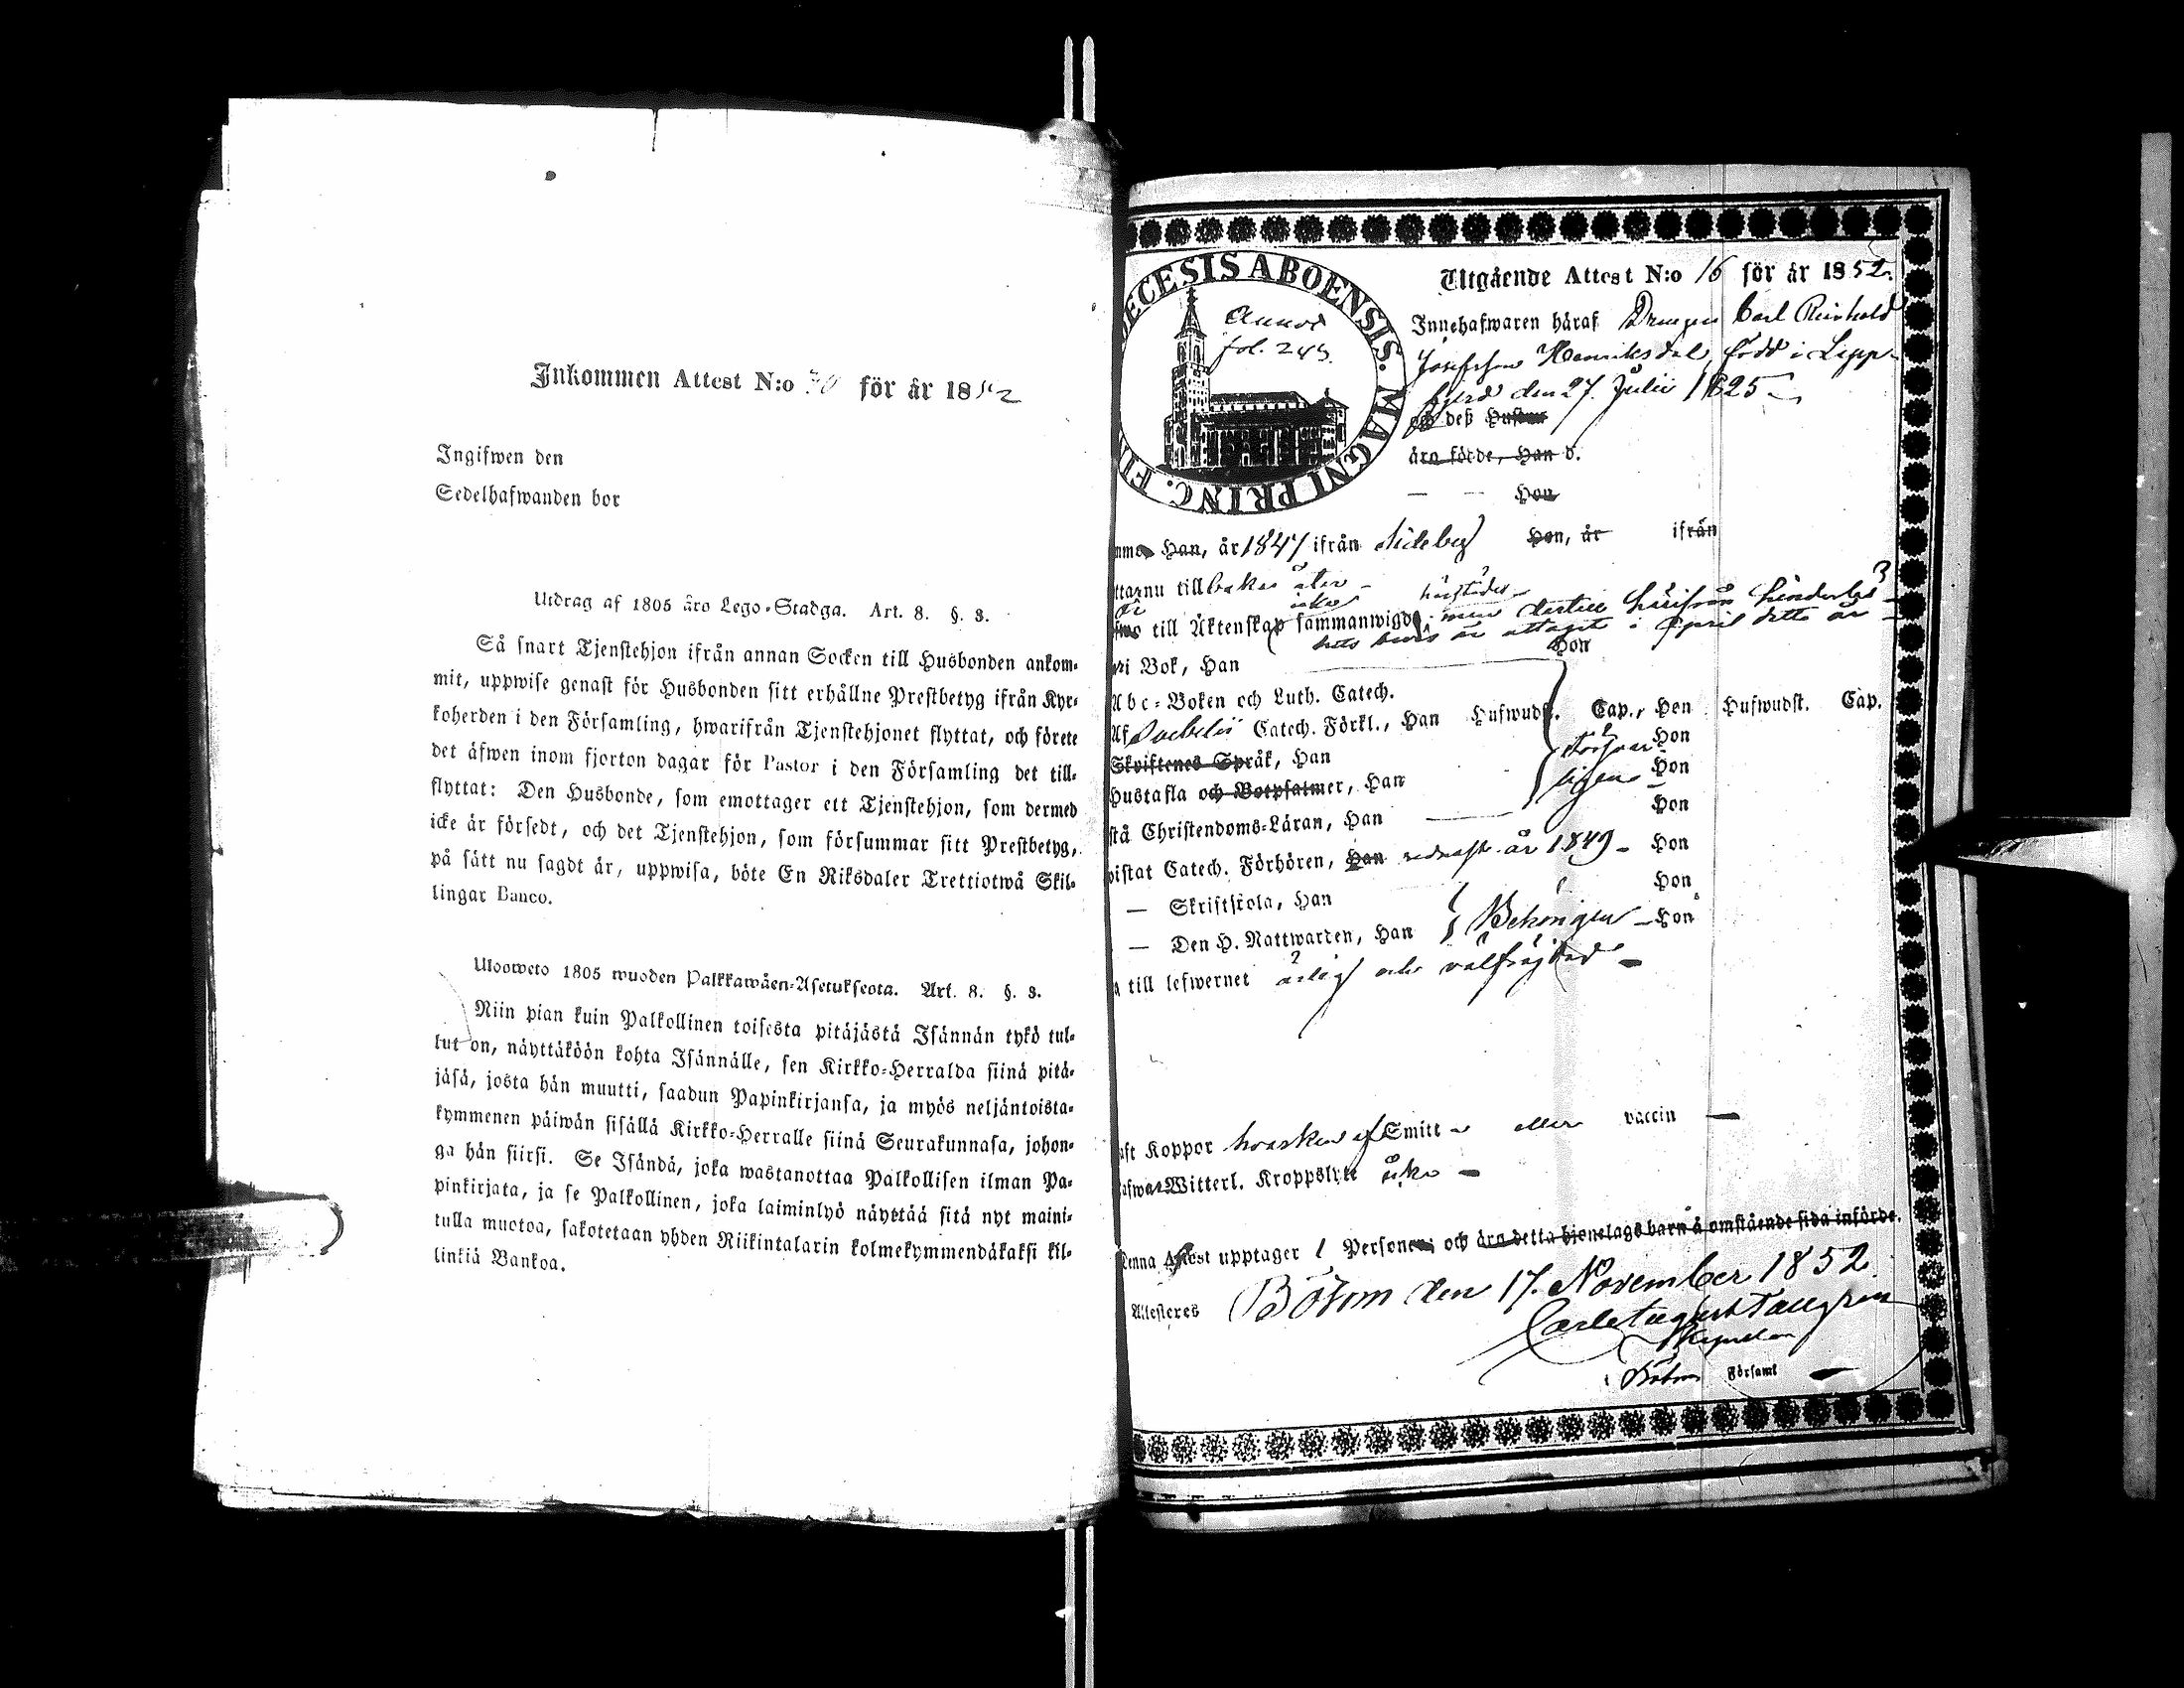 Inkommen Attest N:o 30 för år 1852
Ingifwen den
Sedelhafwanden bor
Utdrag af 1805 åro Lego-Stadga. Art. 8. §. 3.
Så snart Tjenstehjon ifrån annan Socken till Husbonden ankom-
mit, uppwise genast för Husbonden sitt erhållne Prestbetyg ifrån Kyr-
koherden i den Församling, hwarifrån Tjenstehjonet flyttat, och förete
det äfwen inom fjorton dagar för Pastor i den Församling det till-
flyttat: Den Husbonde, som emottager ett Tjenstehjon, som dermed
icke är försedt, och det Tjenstehjon, som försummar sitt Prestbetyg,
på sätt nu sagdt är, uppwisa, böte En Riksdaler Trettiotwå Skil-
lingar Banco.
Ulosweto 1805 wuoden Palkkawäen-Asetuksesta. Art. 8. §. 3.
Niin pian kuin Palkollinen toisesta pitäjästä Isännän tykö tul-
lut on, näyttäköön kohta Isännälle, sen Kirkko-Herralda siinä pitä-
jäsä, josta hän muutti, saadun Papinkirjansa, ja myös neljäntoista-
kymmenen päiwän sisällä Kirkko-Herralle siinä Seurakunnasa, johon-
ga hän siirsi. Se Isändä, joka wastanottaa Palkollisen ilman Pa-
pinkirjata, ja se Palkollinen, joka laiminlyö näyttää sitä nyt maini-
tulla muotoa, sakotetaan yhden Riikintalarin kolmekymmendäkaksi kil-
linkiä Bankoa.
ECESIS ABOENSIS. MAGNI PRINC. FI
fol. 243.
Utgående Attest N:o 16 för år 1852.
Innehafwaren häraf Drengen Carl Reinhold
Josefsson Henriksdal, född i Lapp-
fjerd den 27. Julii 1825
och deß Hustru
äro födde, Han d.
— — Hon
Han, år 1847 ifrån Sideby Hon, år ifrån
nu tillbakas åter
till Äktenskap sammanwigd, men dertill härifrån hinderlös-
hets bewis är uttaget i April detta år
Hon
Bok, Han
Abc-Boken och Luth. Catech.
Af Svebelii Catech. Förkl., Han Hufwudst. Cap., Hon Hufwudst. Cap.
Skriftenes Språk, Han Hon
Hustafla och Botpsalmer, Han Hon
Christendoms-Läran, Han Hon
Catech. Förhören, Han sednast år 1849 Hon
— Skriftskola, Han Hon
— Den H. Nattwarden, Han Behörigen Hon
till lefwernet ärlig och välfrägdad
Koppor hvarken af Smitt eller vaccin —
Witterl. Kroppslyte icke —
Denna Attest upptager 1 Personer, och äro detta hjonelags barn å omstående sida införde.
Attesteras Bötom den 17. November 1852.
Carl August Tallgren
Kapellan
i Bötom Församl —